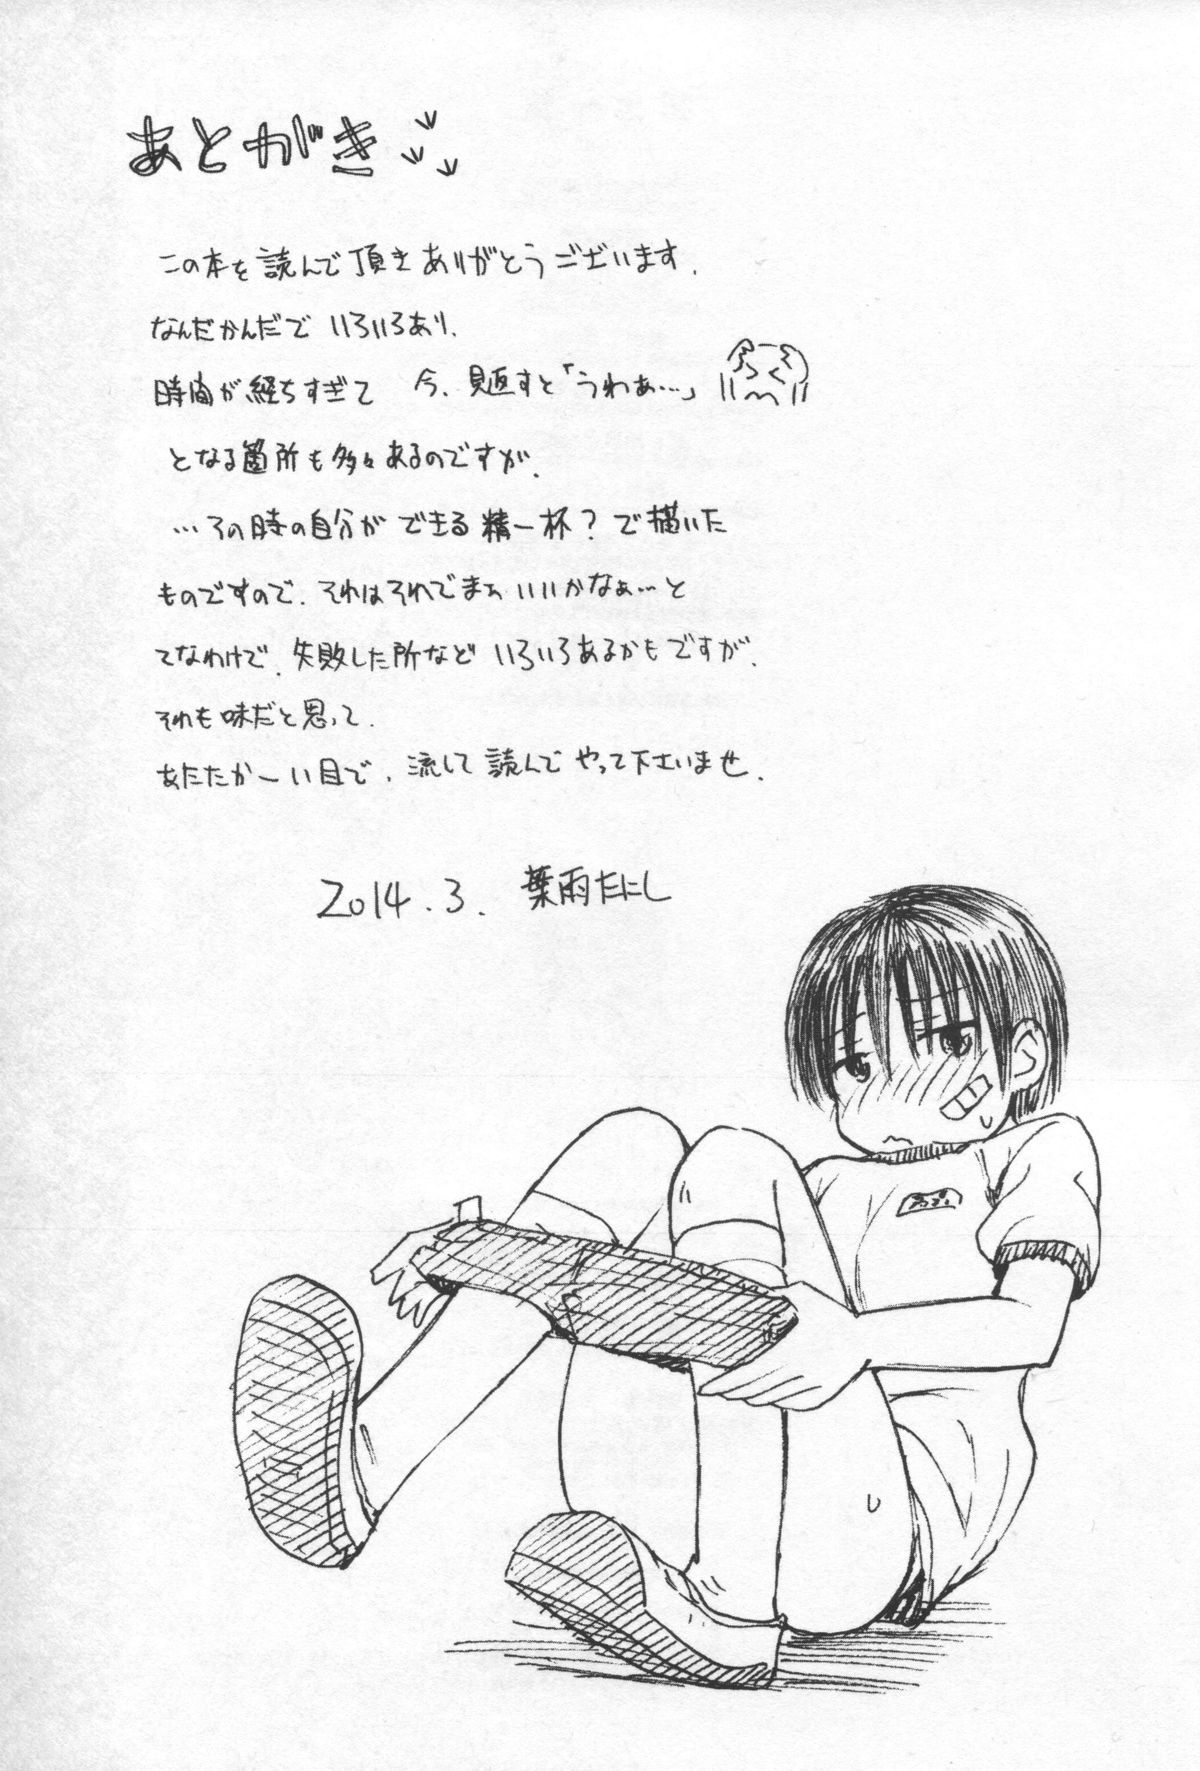 あとがき
この本を読んで頂きありがとうございます.
なんだかんだで いろいろあり、
時間が経ちすぎて 今、見返すと「うわぁ…」
となる箇所も多々あるのですが、
…その時の自分ができる精一杯？で描いた
ものですので、それはそれでまぁいいかなぁ…と
てなわけで、失敗した所など いろいろあるかもですが、
それも味だと思って、
あたたかーい目で、流して読んでやって下さいませ.
2014.3. 葉雨たにし